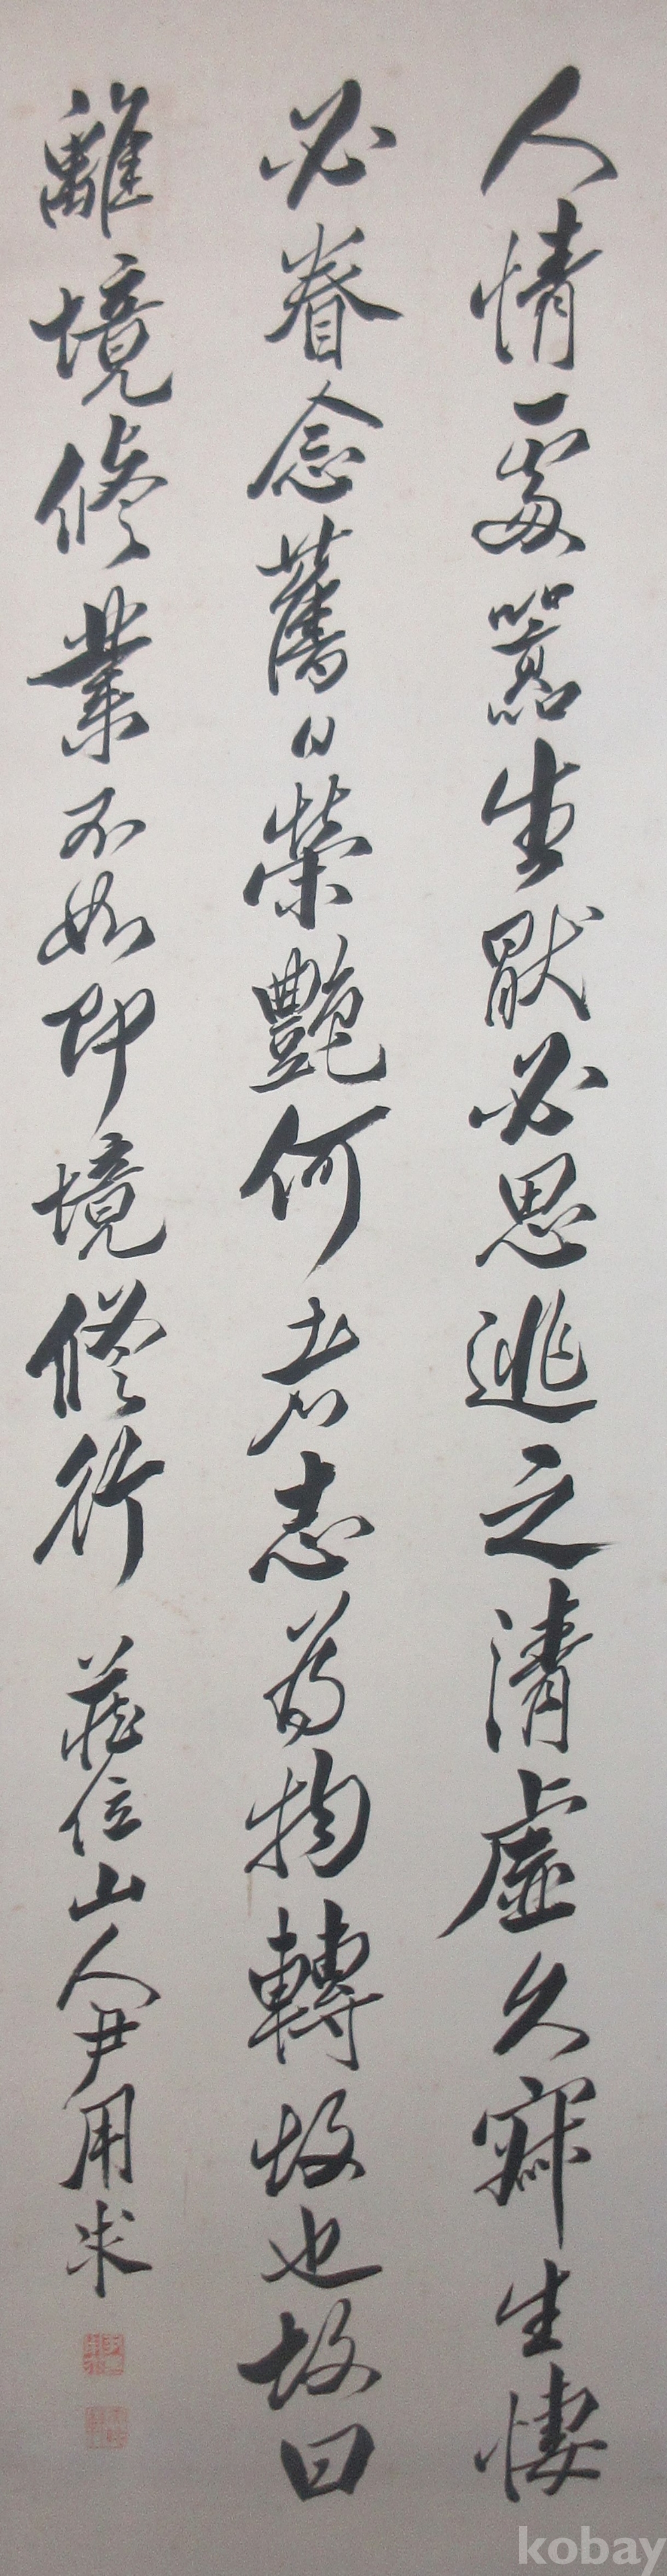 人情處囂生厭必思逃之清虛久寂生悽
必眷念舊日榮艷何者志為物轉故也故曰
離境修業不如即境修行 位山人尹用求
kobay